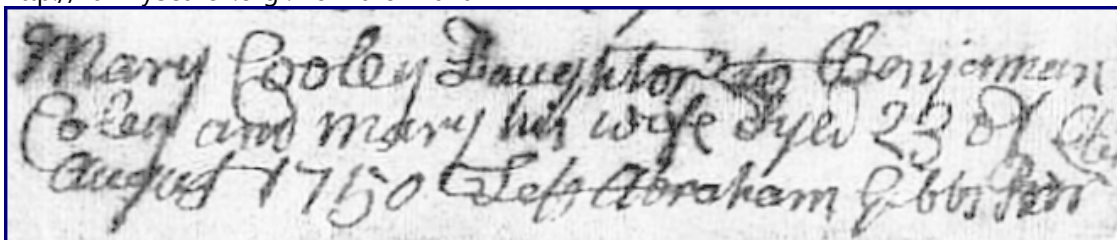 Mary Cooley Daughter to Benjaman
Coley and mary his wife dyed 23 of
August 1750 Test Abraham Gibbs